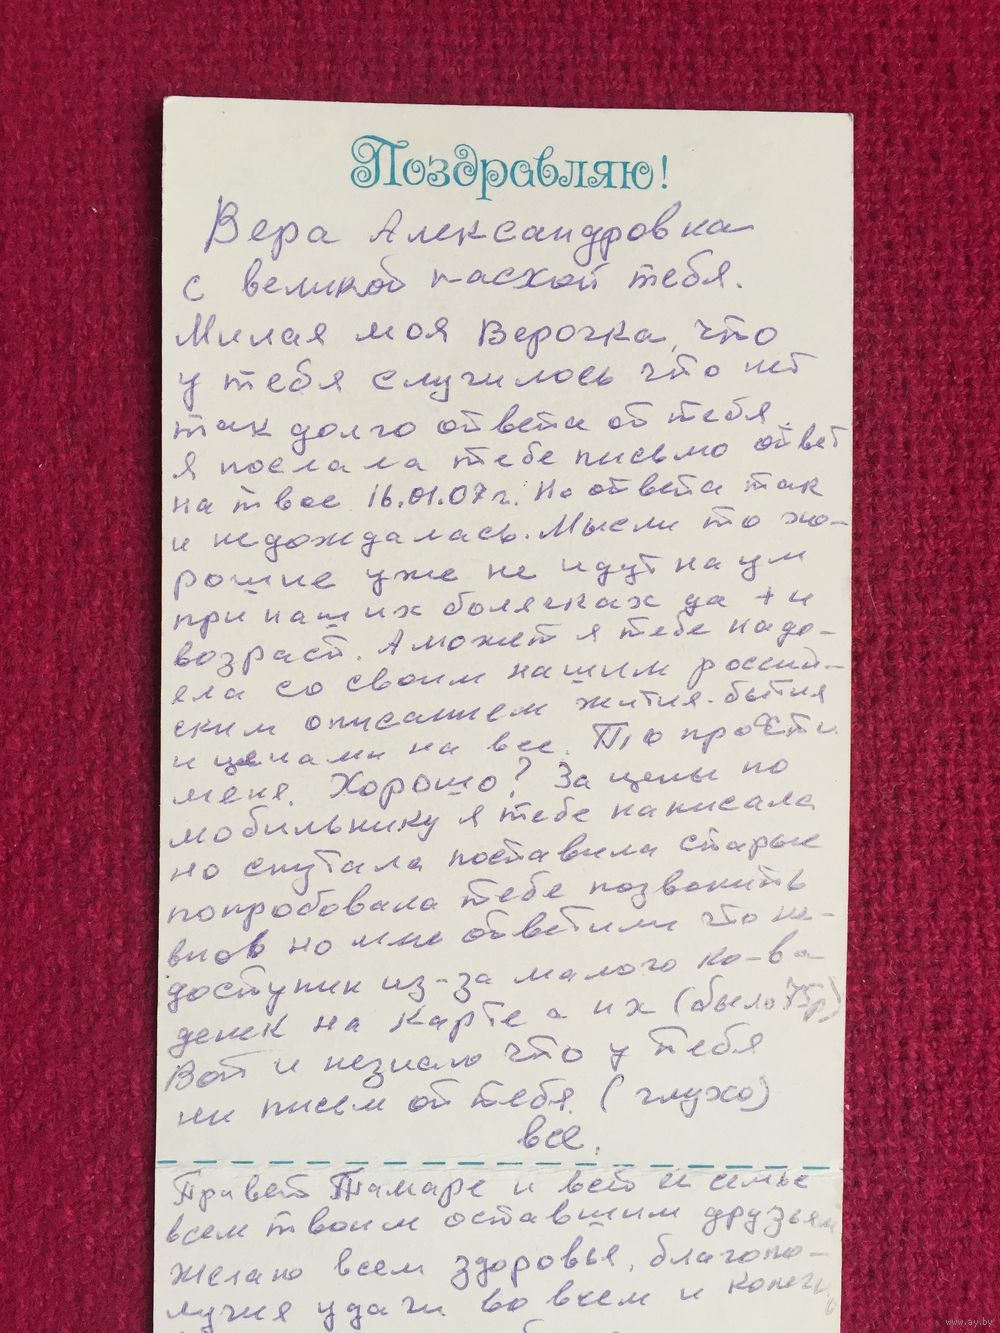 Поздравляю!
Вера Александровна
с великой пасхой тебя.
Милая моя Верочка, что
у тебя случилось что нет
так долго ответа от тебя.
Я послала тебе письмо ответ
на твое 16.01.07г. Но ответа так
и недождалась. Мысли то хо-
рошие уже не идут на ум
при наших болячках да + и
возраст. А может я тебе надо-
ела со своим нашим россий-
ским описанием жития-бытия
и ценами на все. То прости
меня. Хорошо? За цены по
мобильнику я тебе написала
но спутала поставила старые
попробовала тебе позвонить
вновь но мне ответили что не-
доступен из-за малого ко-ва
денек на карте а их (было 75р)
Вот и незнаю что у тебя
ни писем от тебя. (глухо)
все.
Привет Тамаре и всей ее семье
всем твоим оставшим друзьям
желаю всем здоровья, благопо-
лучия удачи во всем и конечно
www.ay.by